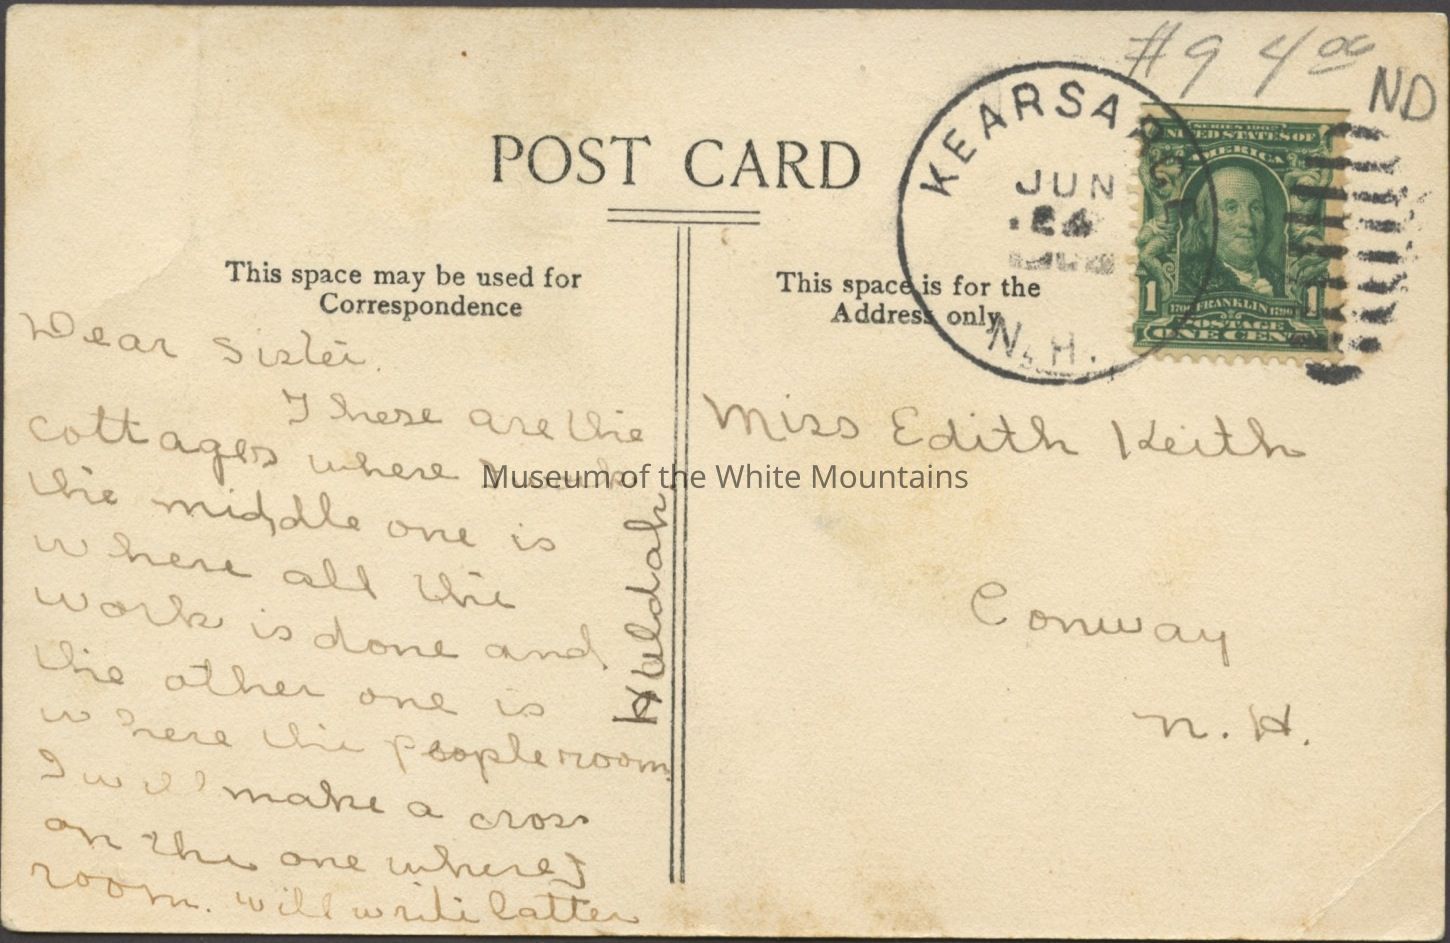 #9 4 00
ND
POST CARD
KEARSARGE
JUN
24
N.H.
SERIES 1902
UNITED STATES OF
AMERICA
1 1
1706 FRANKLIN 1790
POSTAGE
ONE CENT
This space may be used for
Correspondence
This space is for the
Address only
Dear Sister.
These are the
cottages where I work
the middle one is
where all the
work is done and
the other one is
where the people room
I will make a cross
on the one where I
room. will write latter
Huldah
Miss Edith Keith
Conway
N. H.
Museum of the White Mountains